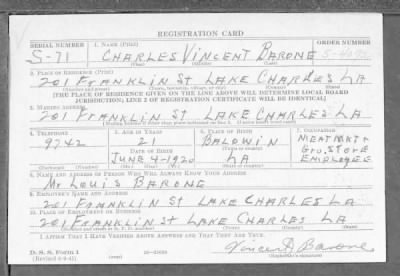 REGISTRATION CARD
SERIAL NUMBER 1. NAME (Print) ORDER NUMBER
S-71 CHARLES VINCENT BARONE
(First) (Middle) (Last)
2. PLACE OF RESIDENCE (Print)
201 FRANKLIN St LAKE CHARLES LA
(Number and street) (Town, township, village, or city) (County) (State)
[THE PLACE OF RESIDENCE GIVEN ON THE LINE ABOVE WILL DETERMINE LOCAL BOARD
JURISDICTION; LINE 2 OF REGISTRATION CERTIFICATE WILL BE IDENTICAL]
3. MAILING ADDRESS
201 FRANKLIN St LAKE CHARLES LA
4. TELEPHONE 5. AGE IN YEARS 6. PLACE OF BIRTH 7. OCCUPATION
9742 21 BALDWIN MEAT MKT &
DATE OF BIRTH (Town or county) GRO. STORE
JUNE 4-1920 LA EMPLOYEE
(Exchange) (Number) (Mo.) (Day) (Yr.) (State or country)
8. NAME AND ADDRESS OF PERSON WHO WILL ALWAYS KNOW YOUR ADDRESS
Mr LOUIS BARONE
9. EMPLOYER'S NAME AND ADDRESS
201 FRANKLIN St LAKE CHARLES LA
10. PLACE OF EMPLOYMENT OR BUSINESS
201 FRANKLIN St LAKE CHARLES LA
(Number and street or R. F. D. number) (Town) (County) (State)
I AFFIRM THAT I HAVE VERIFIED ABOVE ANSWERS AND THAT THEY ARE TRUE.
D. S. S. Form 1 Vincent Barone
(Registrant's signature)